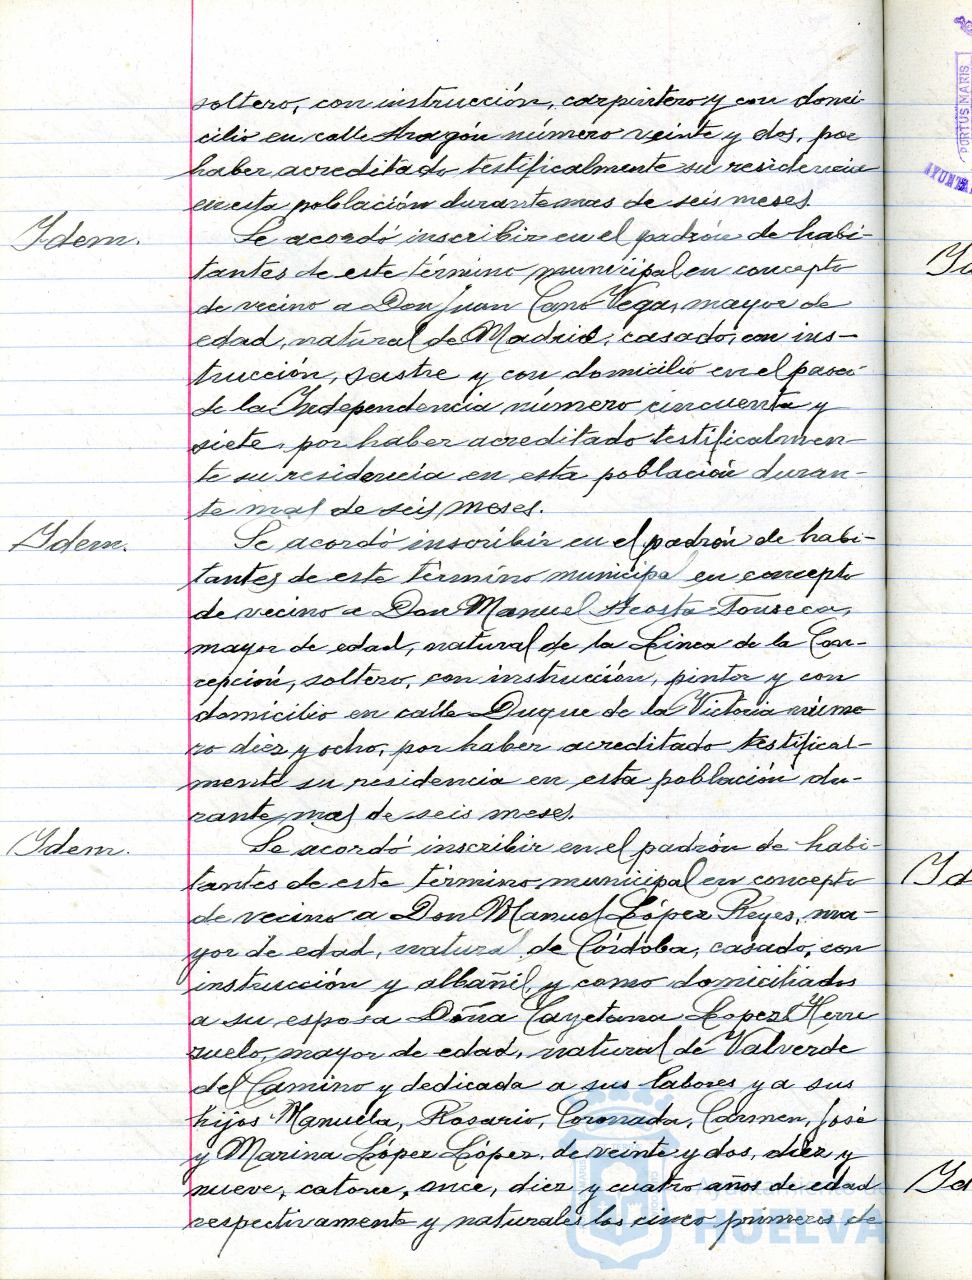 soltero, con instrucción, carpintero y con domi-
cilio en calle Aragón número veinte y dos, por
haber acreditado testificalmente su residencia
en esta población durante mas de seis meses.
Idem.
Se acordó inscribir en el padrón de habi-
tantes de este término municipal en concepto
de vecino a Don Juan Cano Vega, mayor de
edad, natural de Madrid, casado, con ins-
trucción, sastre y con domicilio en el paseo
de la Independencia número cincuenta y
siete, por haber acreditado testificalmen-
te su residencia en esta población duran-
te mas de seis meses.
Idem.
Se acordó inscribir en el padrón de habi-
tantes de este término municipal en concepto
de vecino a Don Manuel Acosta Fonseca,
mayor de edad, natural de la Linea de la Con-
cepción, soltero, con instrucción, pintor y con
domicilio en calle Duque de la Victoria núme-
ro diez y ocho, por haber acreditado testifical-
mente su residencia en esta población du-
rante mas de seis meses.
Idem.
Se acordó inscribir en el padrón de habi-
tantes de este término municipal en concepto
de vecino a Don Manuel López Reyes, ma-
yor de edad, natural de Córdoba, casado, con
instrucción y albañil, y como domiciliados
a su esposa Doña Cayetana Lopez Herre
zuelo, mayor de edad, natural de Valverde
del Camino y dedicada a sus labores y a sus
hijos Manuela, Rosario, Coronada, Carmen, José
y Marina López López, de veinte y dos, diez y
nueve, catorce, once, diez y cuatro años de edad
respectivamente y naturales los cinco primeros de
PORTUS MARIS
Ayuntamiento de
HUELVA